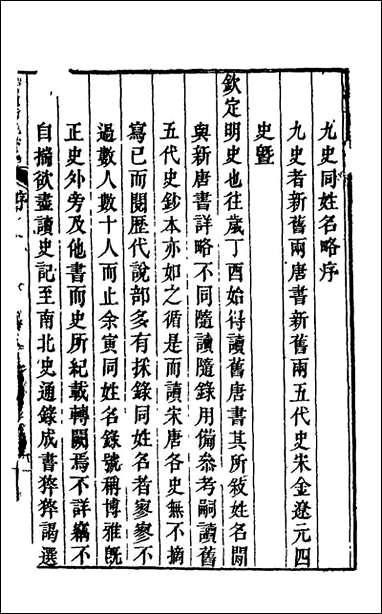 九史同姓名略序
九史者新舊兩唐書新舊兩五代史宋金遼元四
史暨
欽定明史也往歲丁酉始得讀舊唐書其所敘姓名閒
與新唐書詳略不同隨讀隨錄用備叅考嗣讀舊
五代史鈔本亦如之循是而讀宋唐各史無不摘
寫已而閱歷代說部多有採錄同姓名者寥寥不
過數人數十人而止余寅同姓名錄號稱博雅旣
正史外旁及他書而史所紀載轉闕焉不詳竊不
自揣欲盡讀史記至南北史通錄成書猝猝謁選